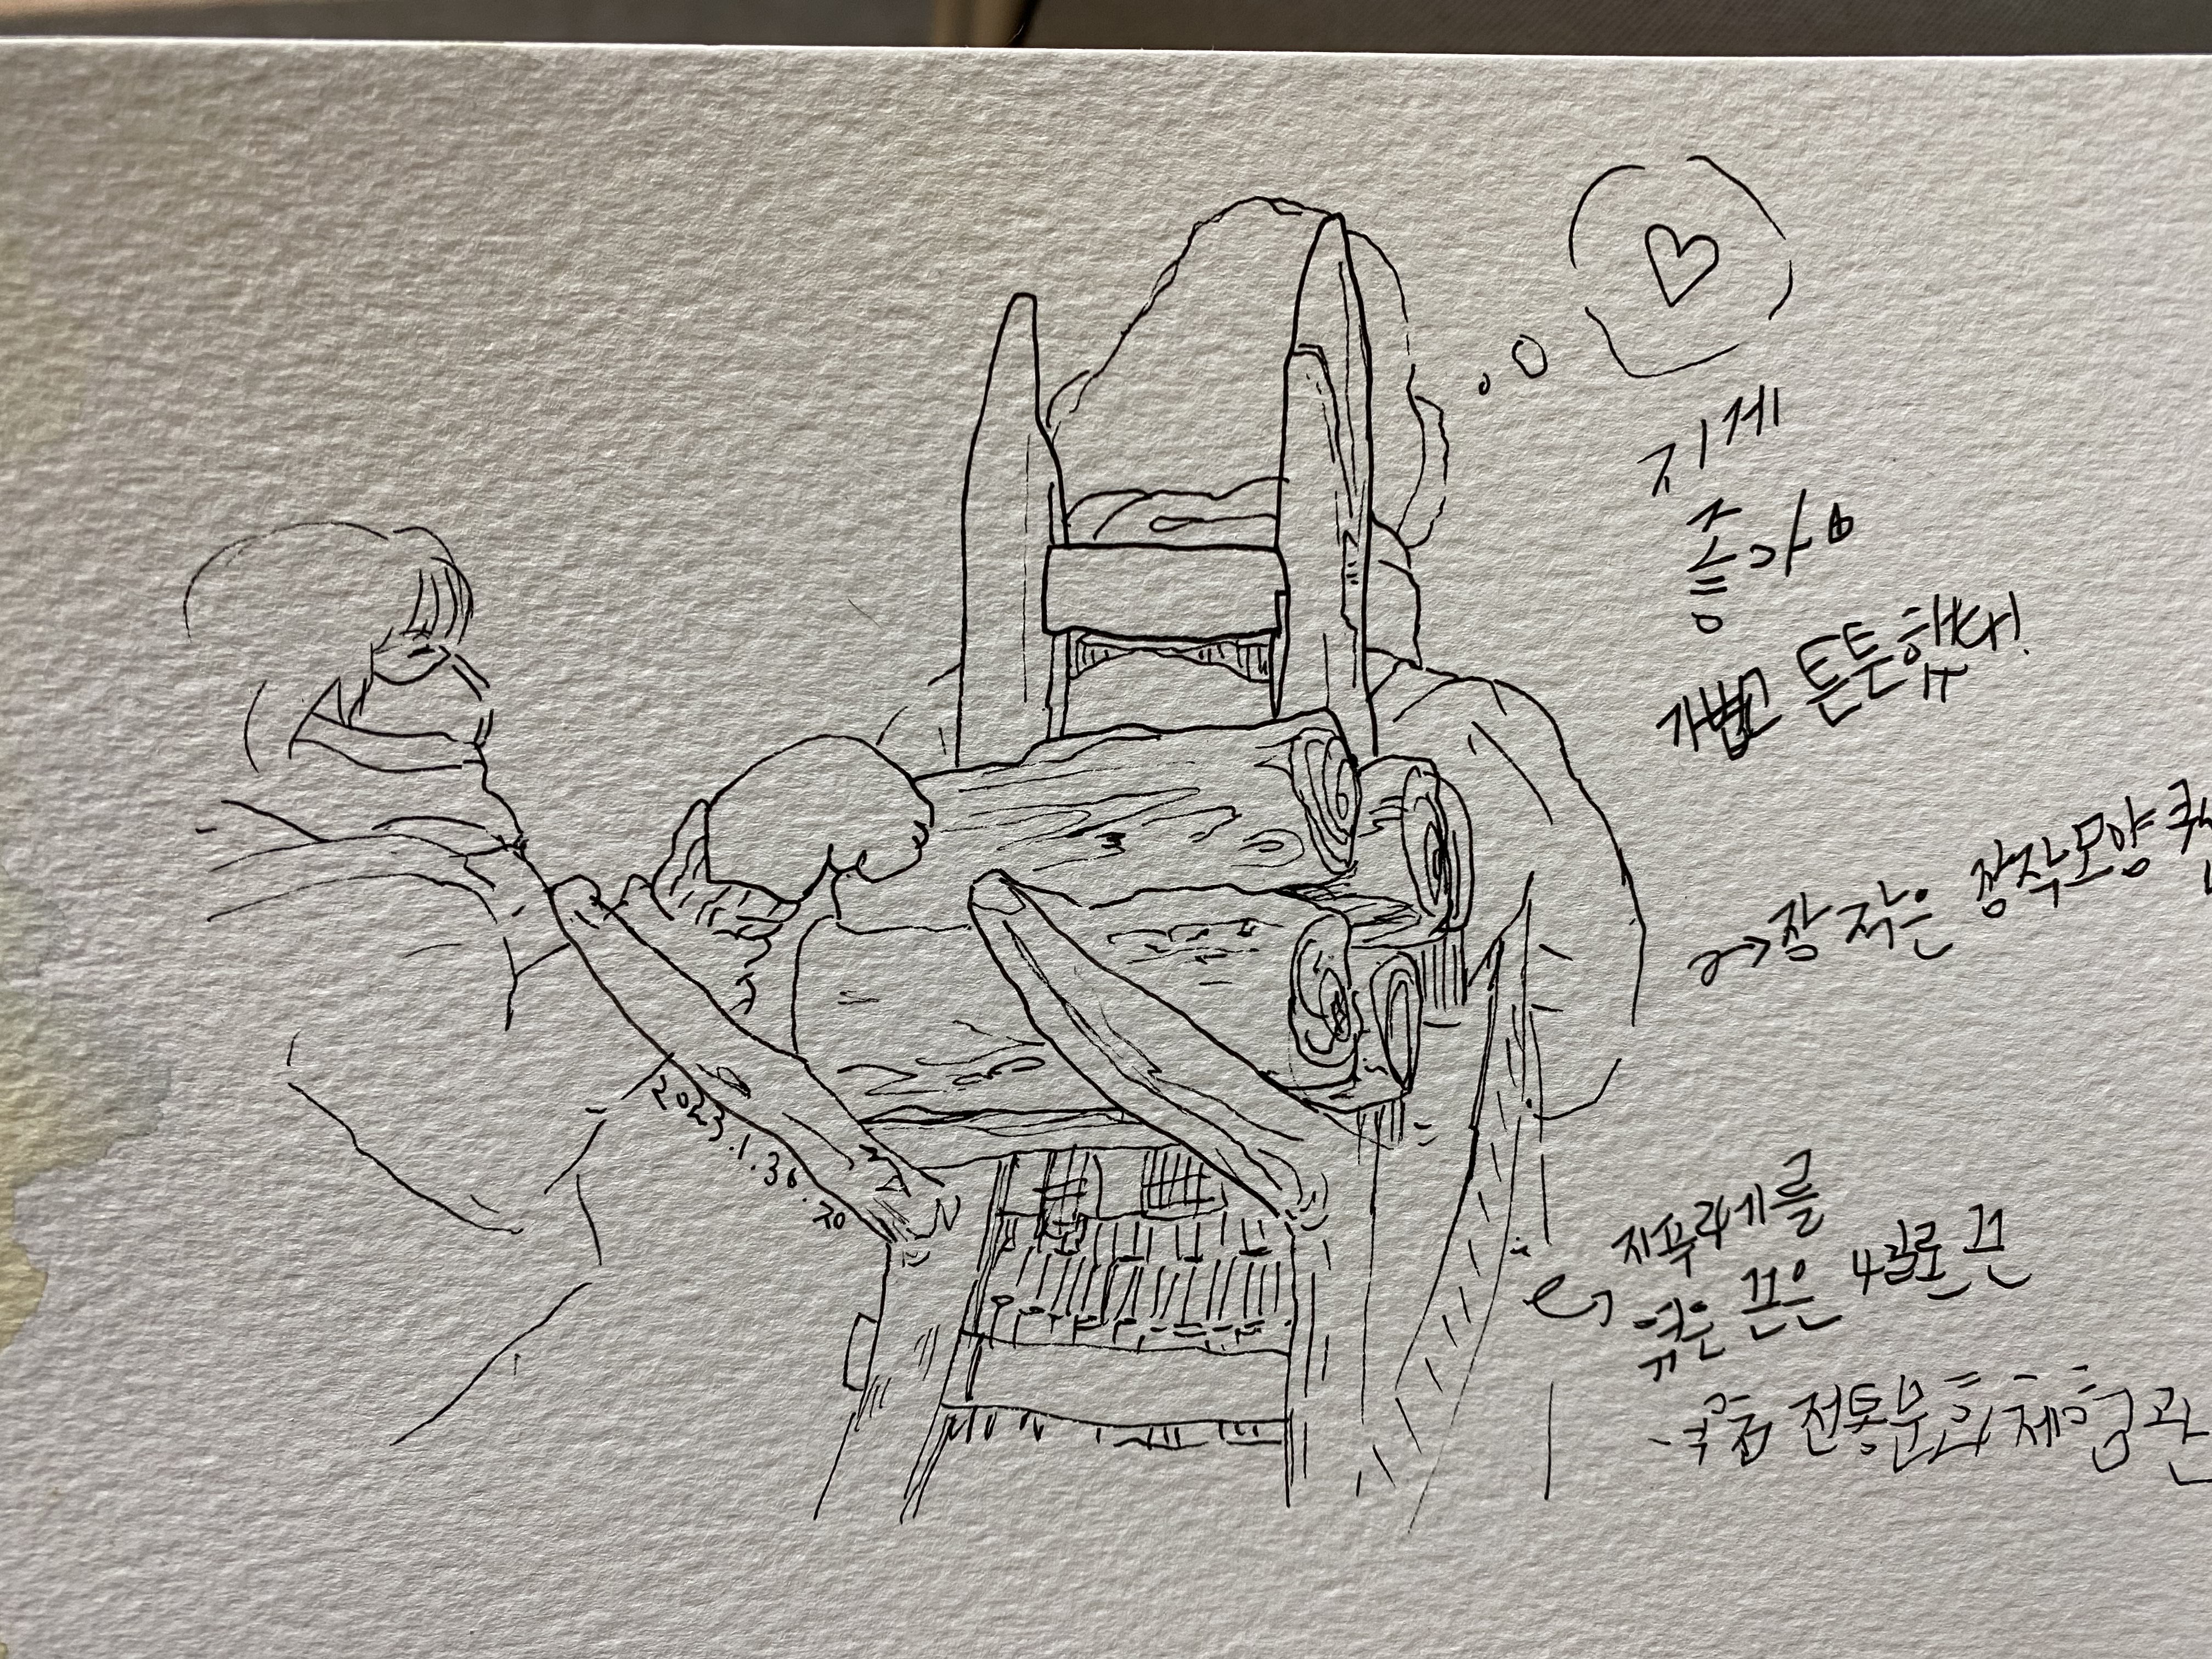 지게
좋아요
가볍고 튼튼했다!
장작은 장작모양 쿠
지푸라기를
엮은 끈은 4글로 끈
전통문화체험관
2023.1.30.